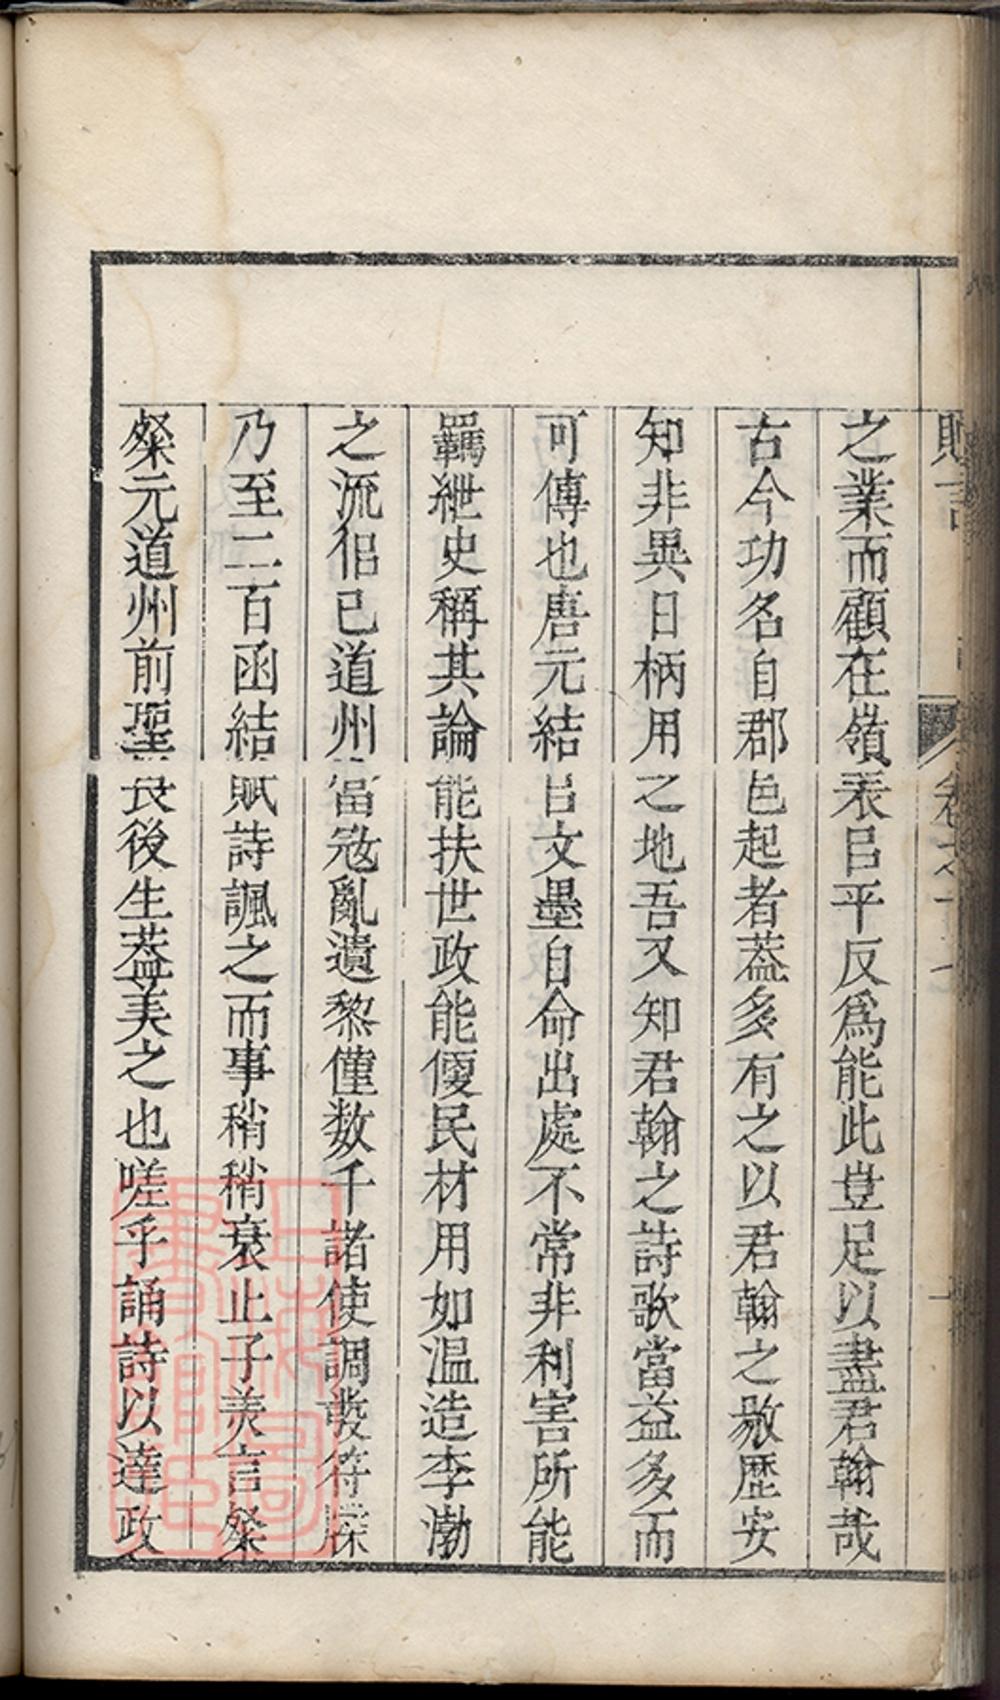 之業而顧在嶺表㠯平反為能此豈足以盡君翰哉
古今功名自郡邑起者葢多有之以君翰之敭歷安
知非異日柄用之地吾又知君翰之詩歌當益多而
可傳也唐元結㠯文墨自命出處不常非利害所能
羈紲史稱其論能扶世政能優民材用如温造李渤
之流侶已道州當寇亂遺黎僅数千諸使調發符牒
乃至二百函結賦詩諷之而事稍稍衰止子美言粲
粲元道州前聖畏後生葢美之也嗟乎誦詩以達政